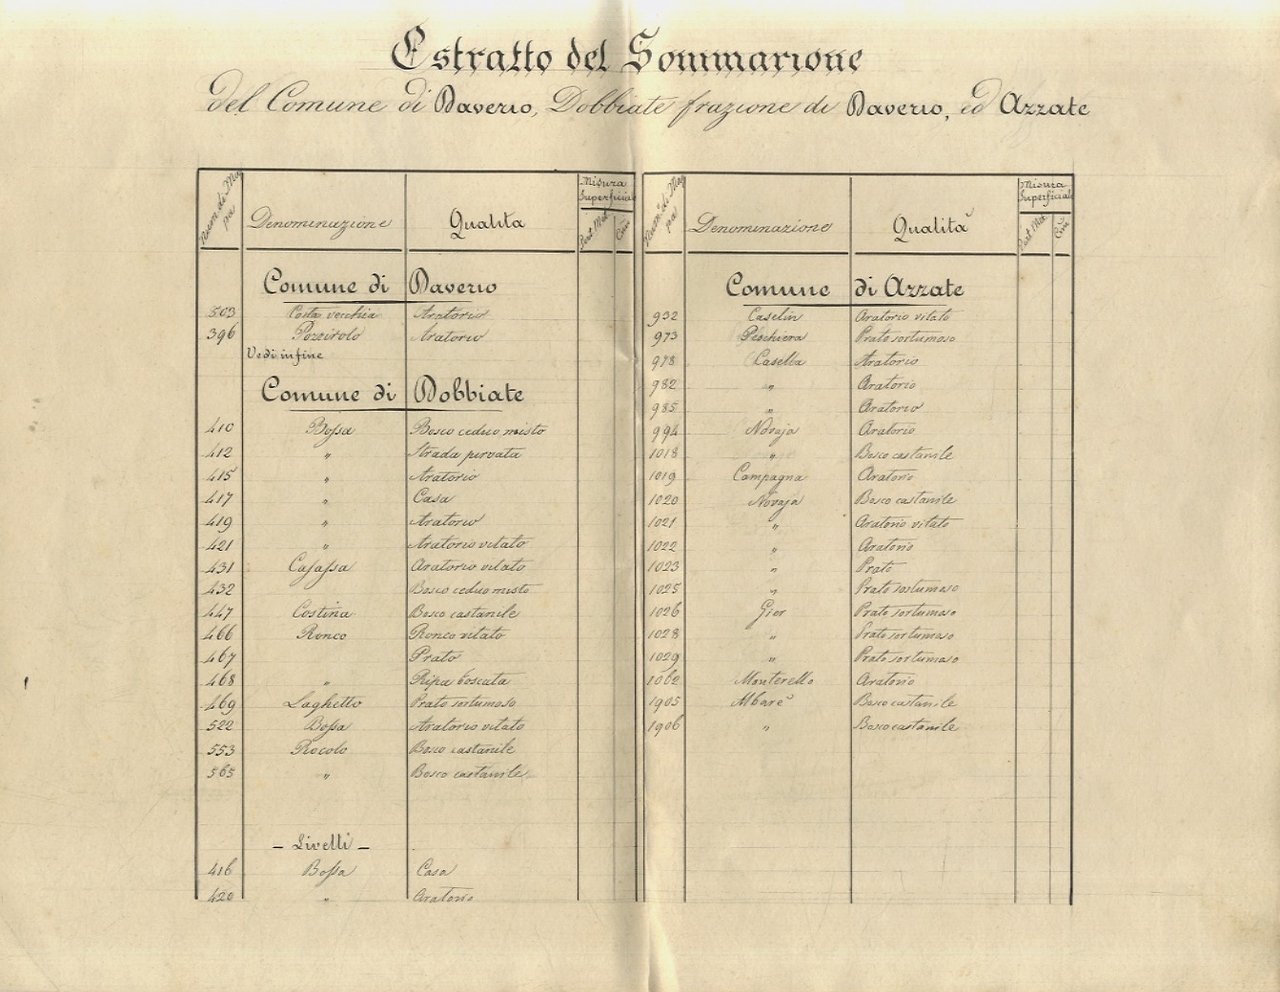 Estratto del Sommarione
del Comune di Daverio, Dobbiate frazione di Daverio, ed Azzate
Num. di Mappa Denominazione Qualità Misura Superficiale Pert. Met. Cen.
Comune di Daverio
503 Costa vecchia Aratorio
396 Pozzirolo Aratorio
Vedi infine
Comune di Dobbiate
410 Bossa Bosco ceduo misto
412 " Strada pervata
415 " Aratorio
417 " Casa
419 " Aratorio
421 " Aratorio vitato
431 Casassa Aratorio vitato
432 Bosco ceduo misto
447 Costina Bosco castanile
466 Ronco Ronco vitato
467 Prato
468 " Ripa boscata
469 Laghetto Prato sortumoso
522 Bossa Aratorio vitato
553 Rocolo Bosco castanile
565 " Bosco castanile
- Livelli -
416 Bossa Casa
420 " Aratorio
Num. di Mappa Denominazione Qualità Misura Superficiale Pert. Met. Cen.
Comune di Azzate
932 Caselin Aratorio vitato
973 Peschiera Prato sortumoso
978 Casella Aratorio
982 " Aratorio
985 " Aratorio
994 Novaja Aratorio
1018 " Bosco castanile
1019 Campagna Aratorio
1020 Novaja Bosco castanile
1021 " Aratorio vitato
1022 " Aratorio
1023 " Prato
1025 " Prato sortumoso
1026 Gier Prato sortumoso
1028 " Prato sortumoso
1029 " Prato sortumoso
1062 Monterello Aratorio
1905 Mbarè Bosco castanile
1906 " Bosco castanile